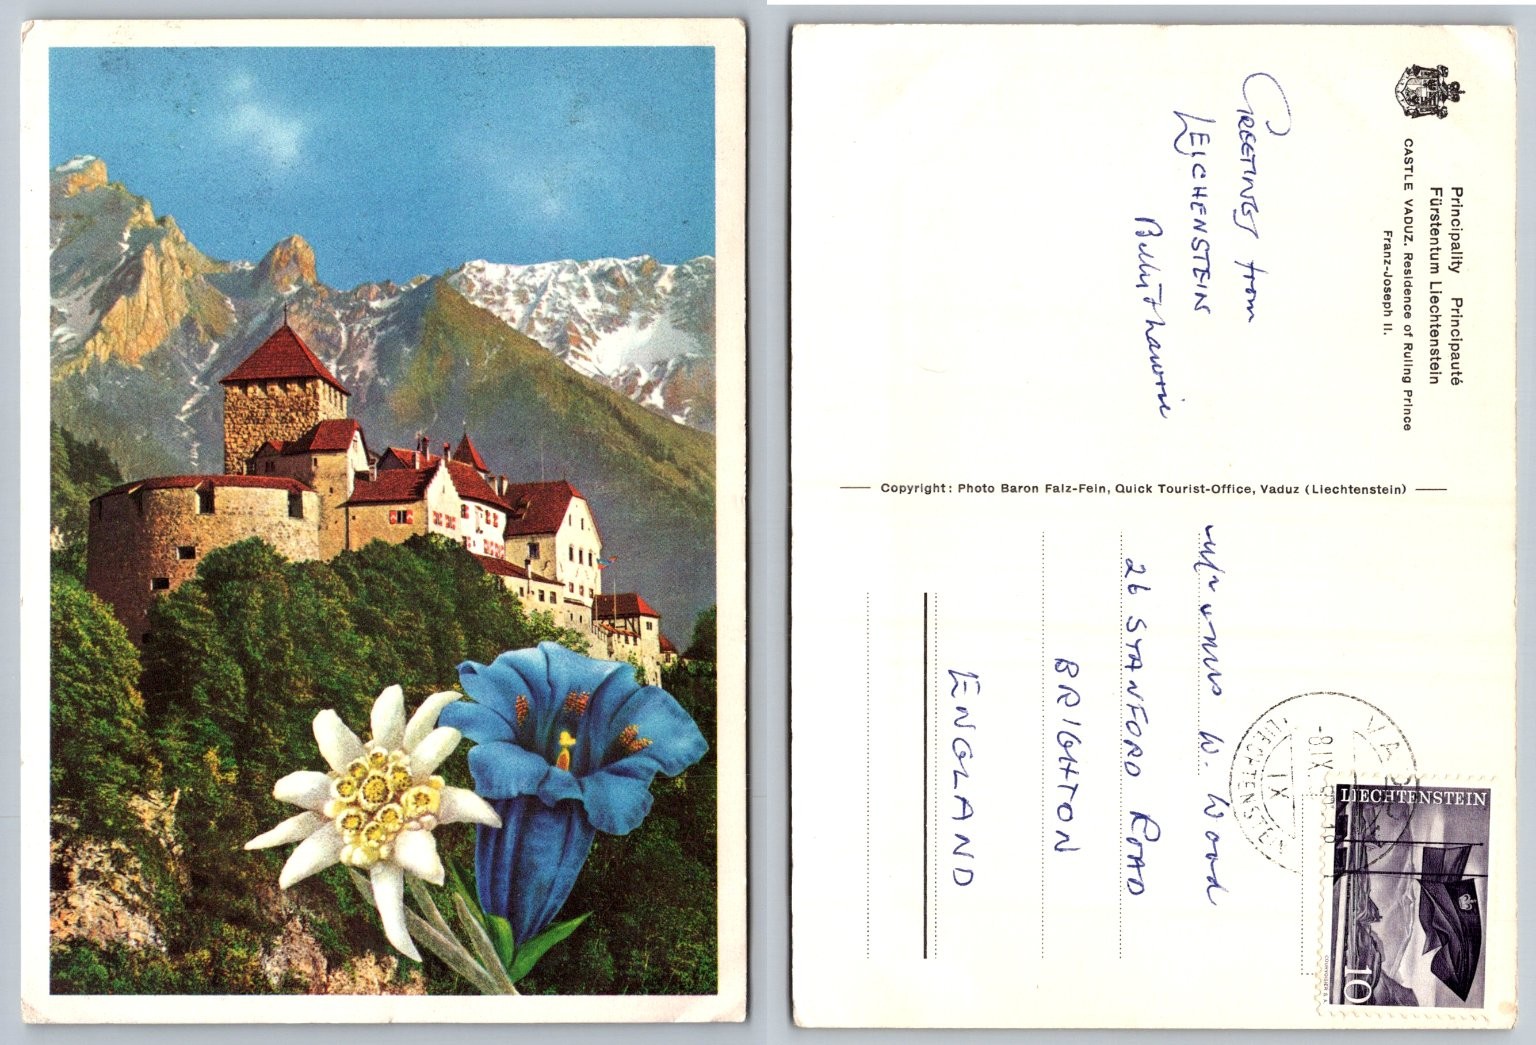 Principality Principauté
Fürstentum Liechtenstein
CASTLE VADUZ. Residence of Ruling Prince
Franz-Joseph II.
GREETINGS from
LEICHENSTEIN
Copyright: Photo Baron Falz-Fein, Quick Tourist-Office, Vaduz (Liechtenstein)
W. Wood
26 STANFORD ROAD
BRIGHTON
ENGLAND
-8IX
IX
LIECHTENSTEIN
LIECHTENSTEIN
10
COURVOISIER S.A.